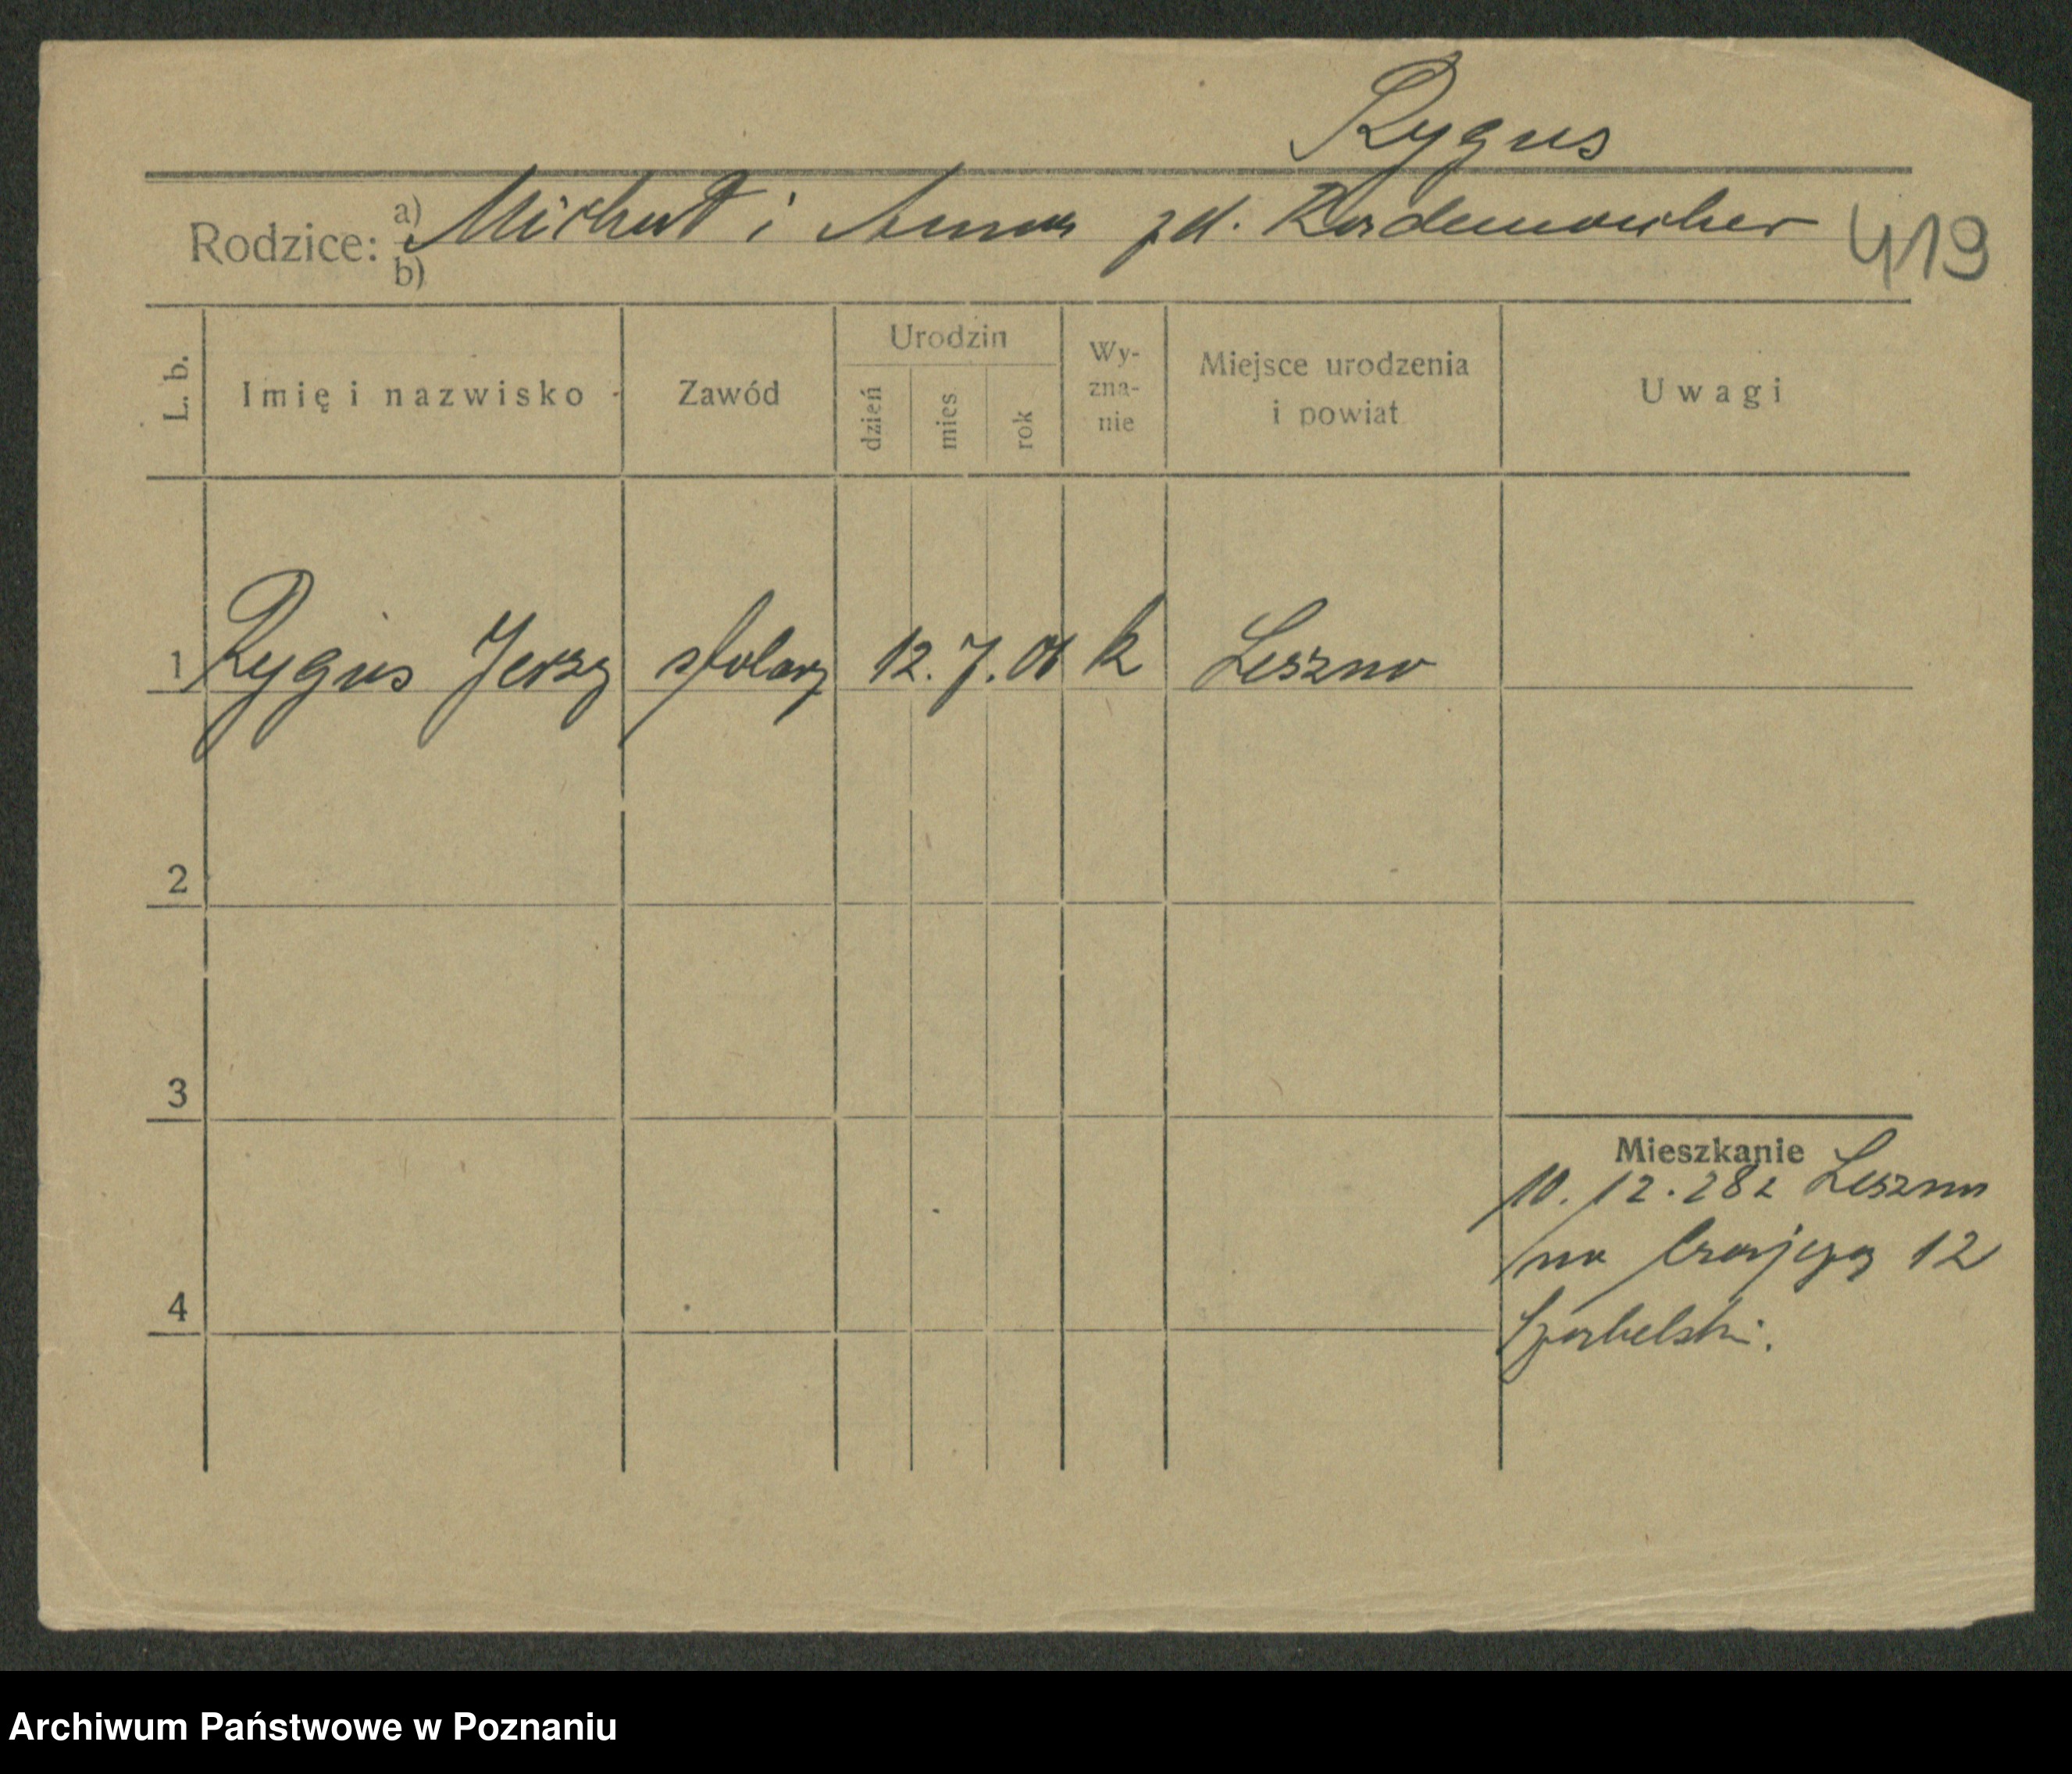 Rygus
Rodzice: a) Michał i Anna zd. Rademacher
b)
419
L. b.
Imię i nazwisko
Zawód
Urodzin
dzień
mies
rok
Wy-
zna-
nie
Miejsce urodzenia
i powiat
Uwagi
1 Rygus Jerzy stolarz 12. 7. 01 k Leszno
2
3
4
Mieszkanie
10. 12. 28 z Leszna
12
Archiwum Państwowe w Poznaniu